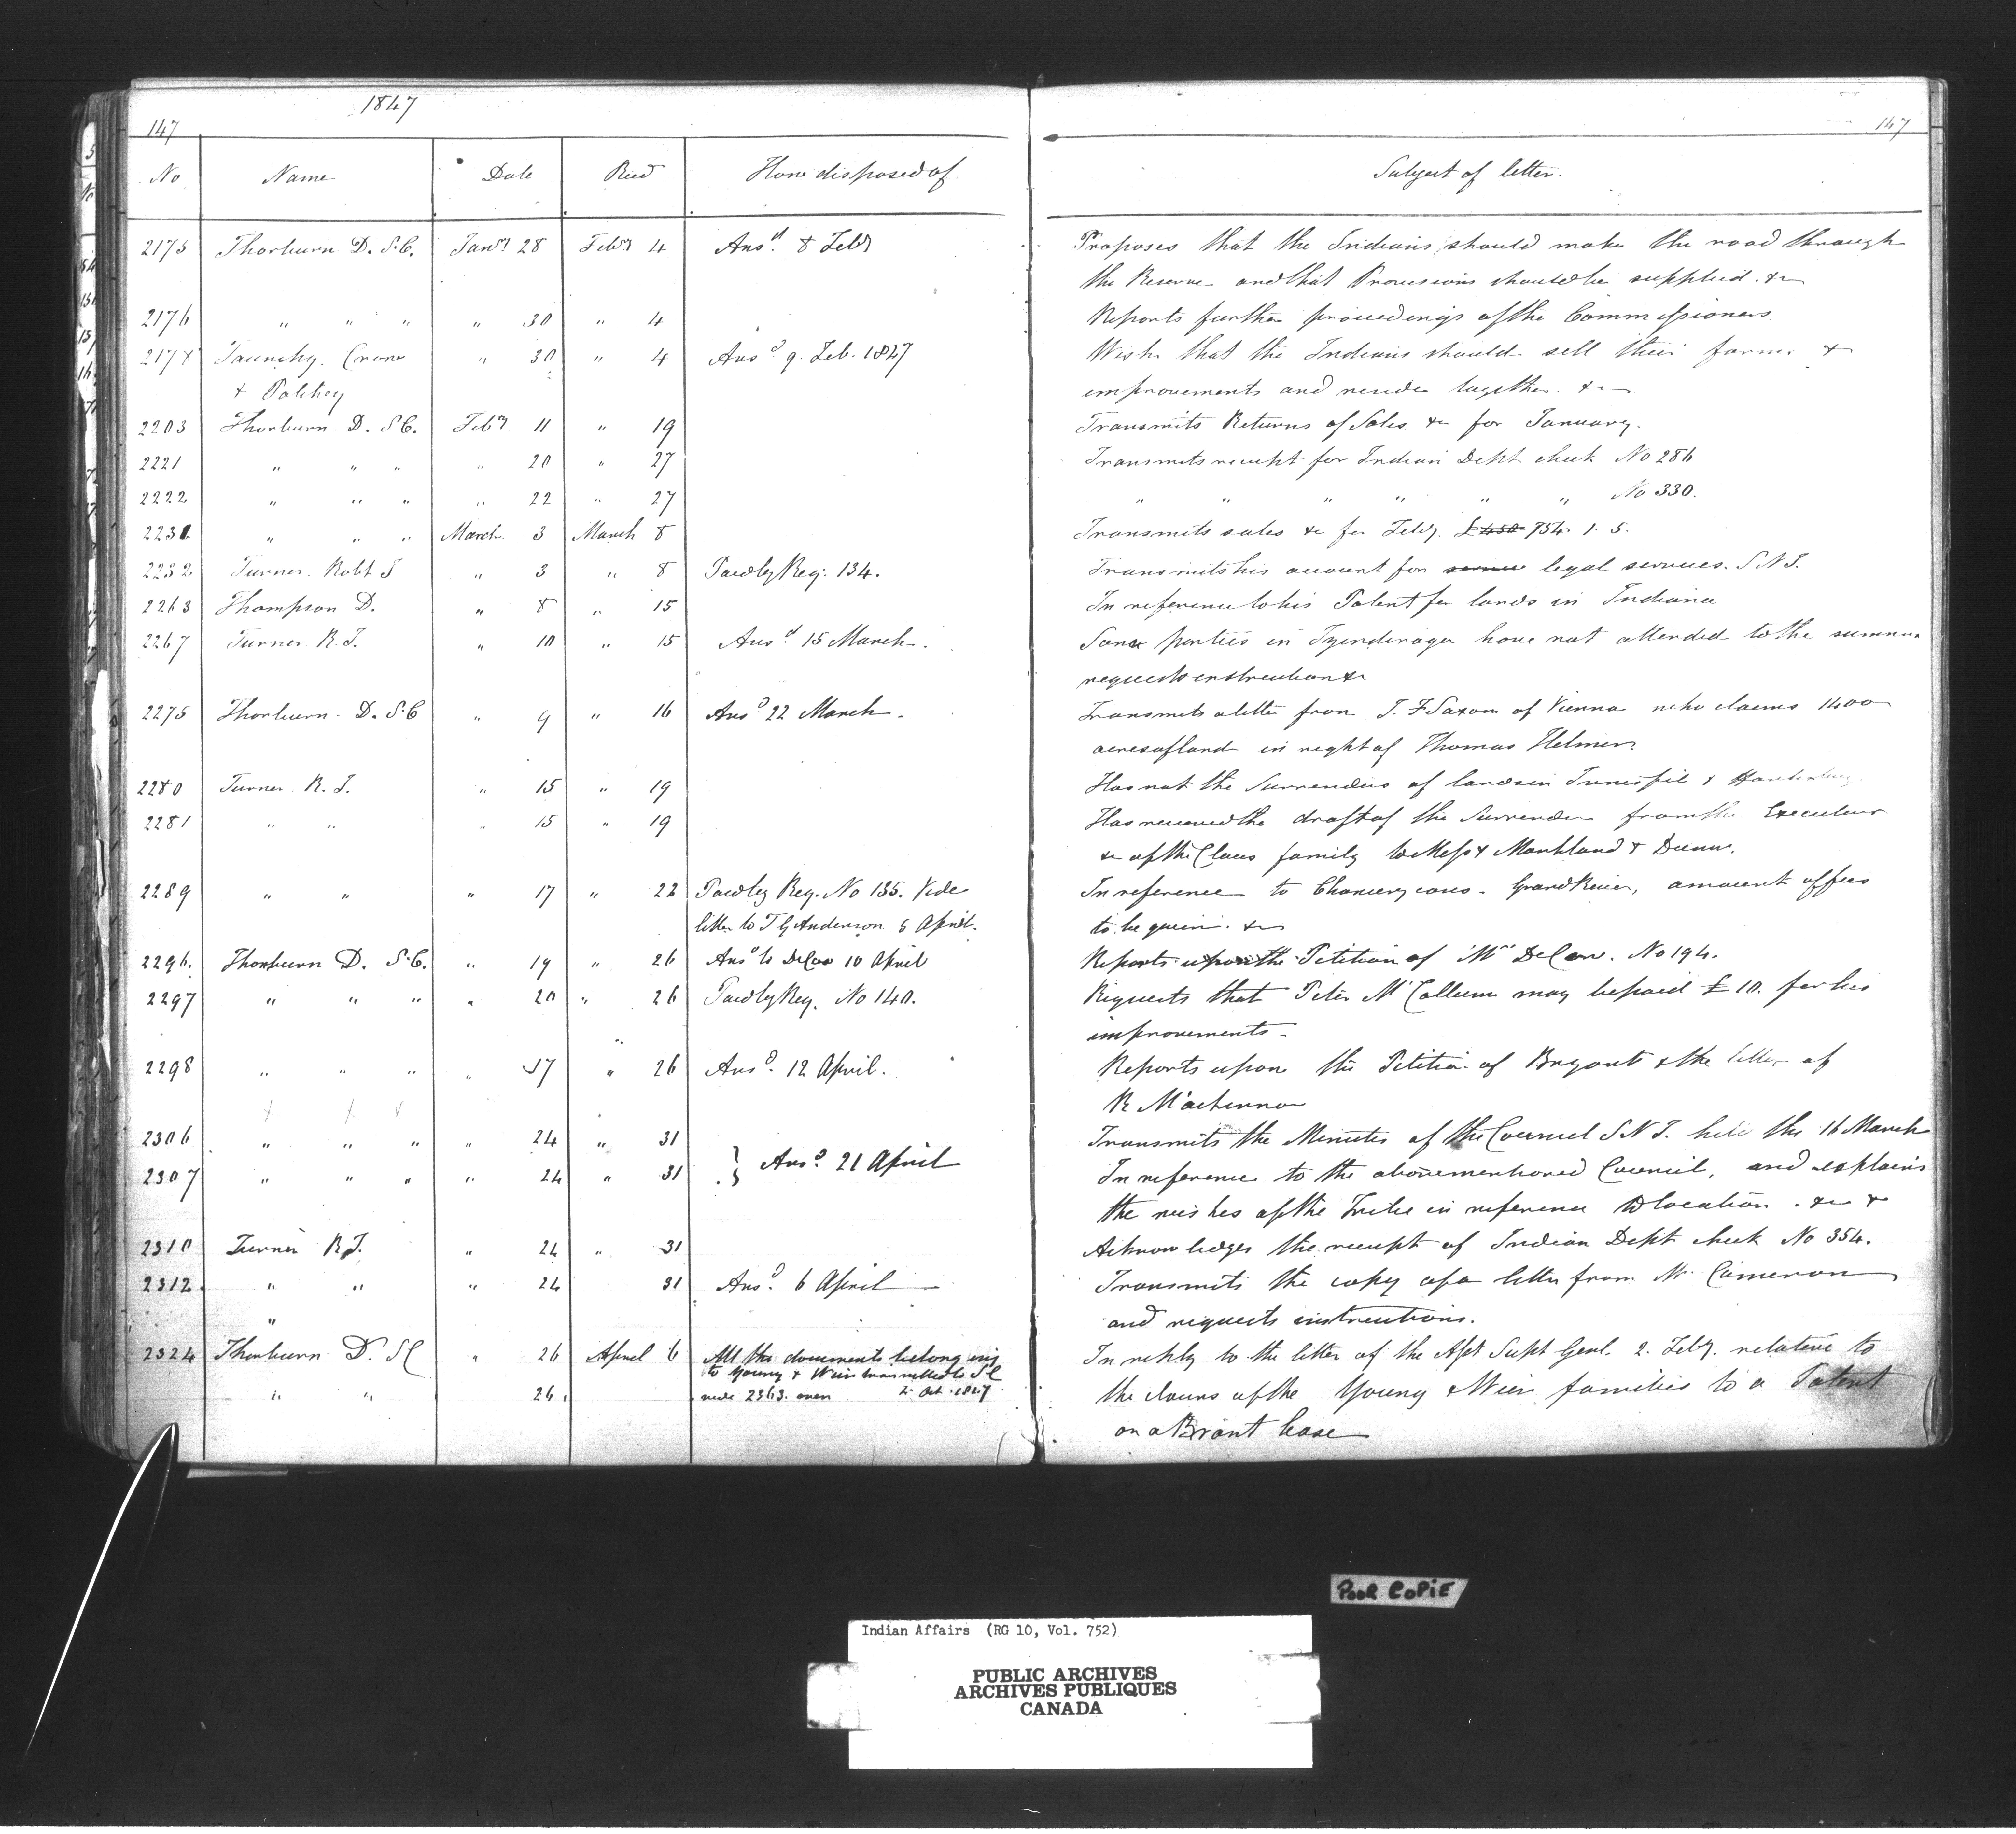 1847
147
147
No Name Date Recd How disposed of Subject of letter.
2175 Thorburn D. S.C. Jany 28 Feby 4 Ansd. 8 Feby Proposes that the Indians should make the road through
the Reserve and that Provisions should be supplied. &c
2176 " " " " 30 " 4 Reports further proceedings of the Commissioners.
2178 Crane " 30 " 4 Ansd 9. Feb. 1847 Wish that the Indians should sell their farms &
& improvements and reside together. &c
2203 Thorburn D. S.C. Feby 11 " 19 Transmits Returns of Sales &c for January.
2221 " " " " 20 " 27 Transmits receipt for Indian Dept check No 286
2222 " " " " 22 " 27 " " " " " " No 330.
2231 " " " March 3 March 8 Transmits sales &c for Feby. £ 450 754. 1. 5.
2232 Turner Robt J " 3 " 8 Paid by Req. 134. Transmits his account for service legal services. S.N.I.
2263 Thompson D. " 8 " 15 In reference to his Patent for lands in Indiana
2267 Turner R. J. " 10 " 15 Ansd 15 March. Some parties in Tyendinaga have not attended to the summons
requests instructions &c
2275 Thorburn D. S.C " 9 " 16 Ansd 22 March. Transmits a letter from J. F Saxon of Vienna who claims 1400
acres of land in right of Thomas Helmer.
2280 Turner R. J. " 15 " 19 Has not the Surrenders of lands in Innisfil &
2281 " " " 15 " 19 Has received the draft of the Surrender from the Executors
&c of the Claus family to Messrs Markland & Dunn.
2289 " " " 17 " 22 Paid by Req. No 135. Vide In reference to Chancery cases. Grand River, amount of fees
letter to T G Anderson 5 April. to be given. &c
2296. Thorburn D. S.C. " 19 " 26 Ansd to DeCow 10 April Reports upon the Petition of Mr DeCow. No 194.
2297 " " " " 20 " 26 Paid by Req. No 140. Requests that Peter McCollum may be paid £10. for his
improvements.
2298 " " " " 17 " 26 Ansd. 12 April. Reports upon the Petition of Bryant & the letter of
R
2306 " " " " 24 " 31 Transmits the Minutes of the Council S.N.I. held the 16 March
} Ansd. 21 April
2307 " " " " 24 " 31 In reference to the abovementioned Council, and explains
the wishes of the Tribe in reference to location. &c &
2310 Turner R J. " 24 " 31 Acknowledges the receipt of Indian Dept check No 354.
2312. " " " 24 31 Ansd. 6 April Transmits the copy of a letter from Mr. Cameron
" and requests instructions.
2324 Thorburn D. S C " 26 April 6 All the documents belonging In reply to the letter of the Asst Supt Genl. 2. Feby. relative to
to Young & Weir transmitted to S C
" " 26. vide 2363. over 2 Oct. 1847 the claims of the Young & Weir families to a Patent
on a Brant lease
POOR COPIE
Indian Affairs (RG 10, Vol. 752)
PUBLIC ARCHIVES
ARCHIVES PUBLIQUES
CANADA